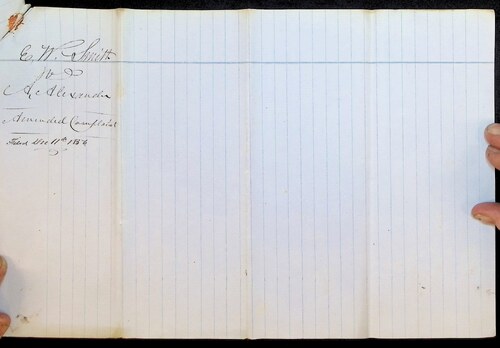 E. W. Smith
vs
A. Alexander
Amended Complaint
Filed Dec 11th 1854